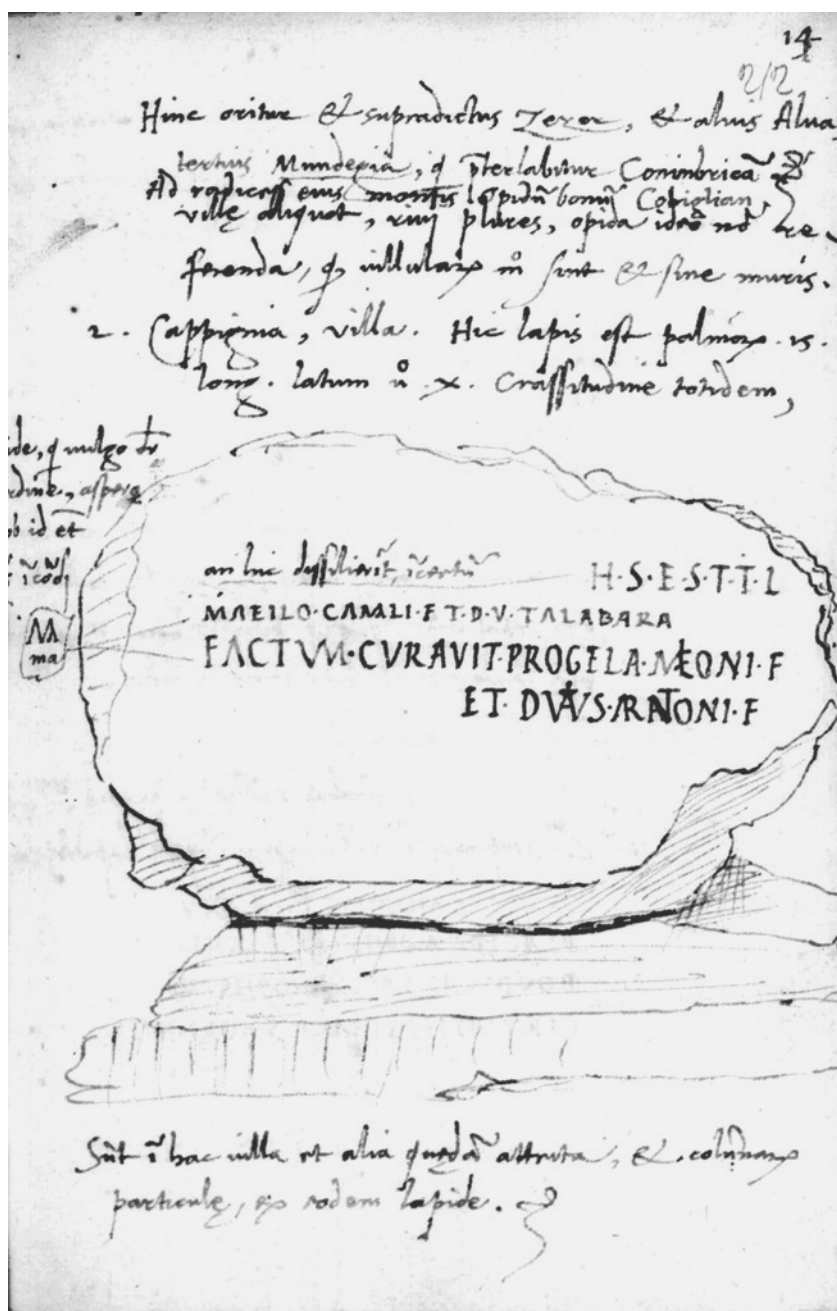 14
212
Hinc oritur & supradictus Zezer, & alius Alua
tertius Mundegia, q̃ p̃terlabitur Conimbricã
Ad radices eius montis opidũ bonũ Cobiglian,
villę aliquot, riui plures, opida ideo nõ re-
ferenda, q̃ uillular m̊ sint & sine muris.
2. Cappinia, villa. Hic lapis est palmor. 15.
long. latum ů. x. Crassitudine totidem,
ide, q̃ uulgo dr̃
rdine, aspero
ob id et̃
ĩcod
M
ma
an hic dissilierit, ĩcertũ
H·S·E·S·T·T·L
MAEILO·CAMALI·F·T·D·V·TALABARA
FACTVM·CVRAVIT·PROGELA·MEONI·F
ET·DVATIVS·ARANTONI·F
Sũt ĩ hac uilla et alia quędã attrita, & colũnar
particulę, ex eodem lapide.